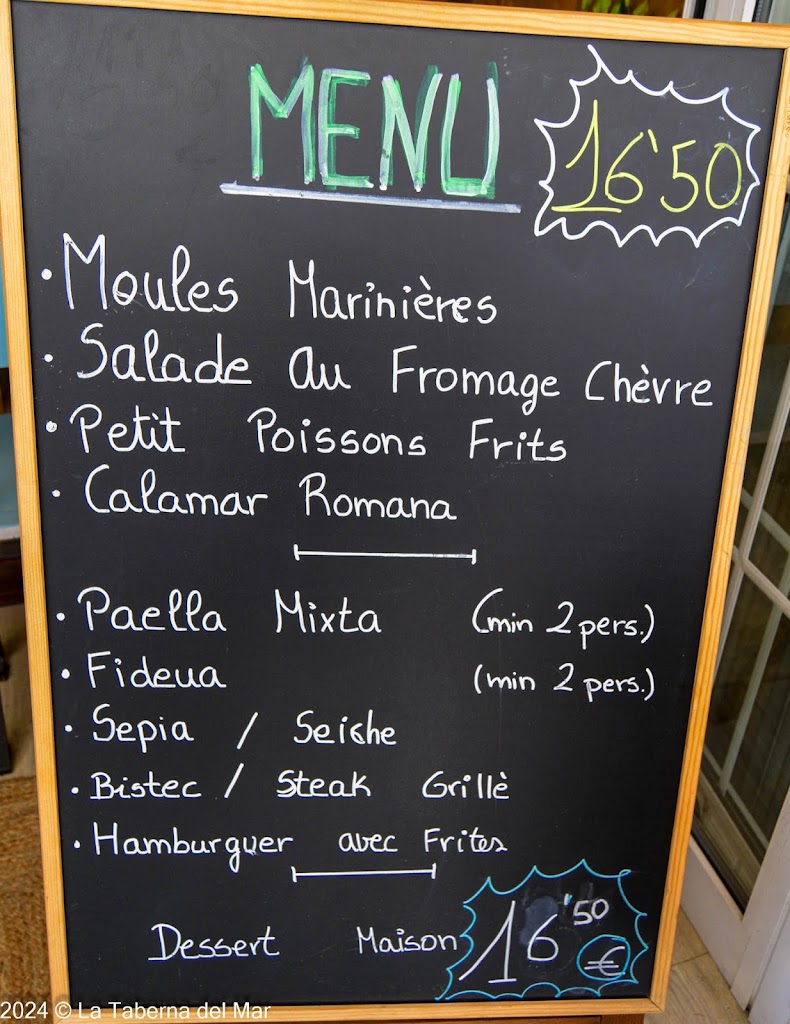 MENU 16'50
• Moules Marinières
• Salade au Fromage Chèvre
• Petit Poissons Frits
• Calamar Romana
• Paella Mixta (min 2 pers.)
• Fideua (min 2 pers.)
• Sepia / Seiche
• Bistec / Steak Grillè
• Hamburguer avec Frites
Dessert Maison 16'50 €
2024 © La Taberna del Mar